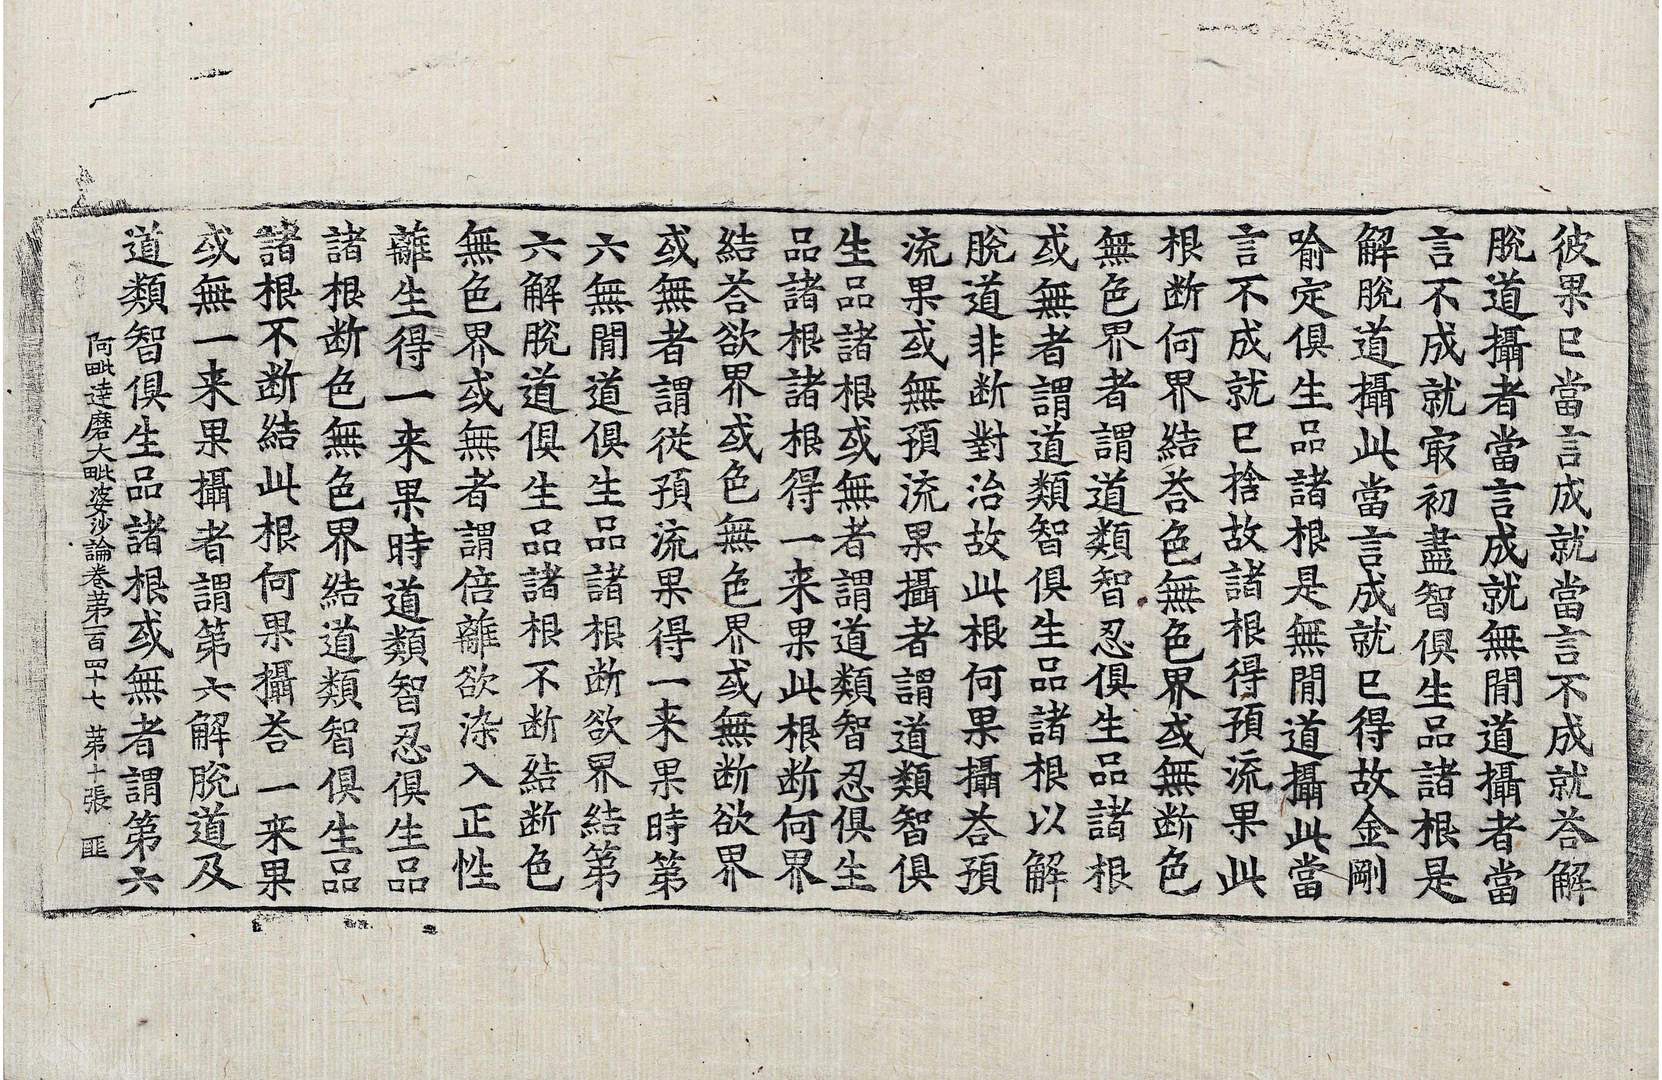 彼果已當言成就當言不成就荅解
脫道攝者當言成就無閒道攝者當
言不成就㝡初盡智俱生品諸根是
解脫道攝此當言成就已得故金剛
喻定俱生品諸根是無閒道攝此當
言不成就已捨故諸根得預流果此
根断何界結荅色無色界或無断色
無色界者謂道類智忍俱生品諸根
或無者謂道類智俱生品諸根以解
脫道非断對治故此根何果攝荅預
流果或無預流果攝者謂道類智俱
生品諸根或無者謂道類智忍俱生
品諸根諸根得一来果此根断何界
結荅欲界或色無色界或無断欲界
或無者謂從預流果得一来果時第
六無閒道俱生品諸根断欲界結第
六解脫道俱生品諸根不断結断色
無色界或無者謂倍離欲染入正性
離生得一来果時道類智忍俱生品
諸根断色無色界結道類智俱生品
諸根不断結此根何果攝荅一来果
或無一来果攝者謂第六解脫道及
道類智俱生品諸根或無者謂第六
阿毗達磨大毗婆沙論卷第一百四十七 第十張 匪